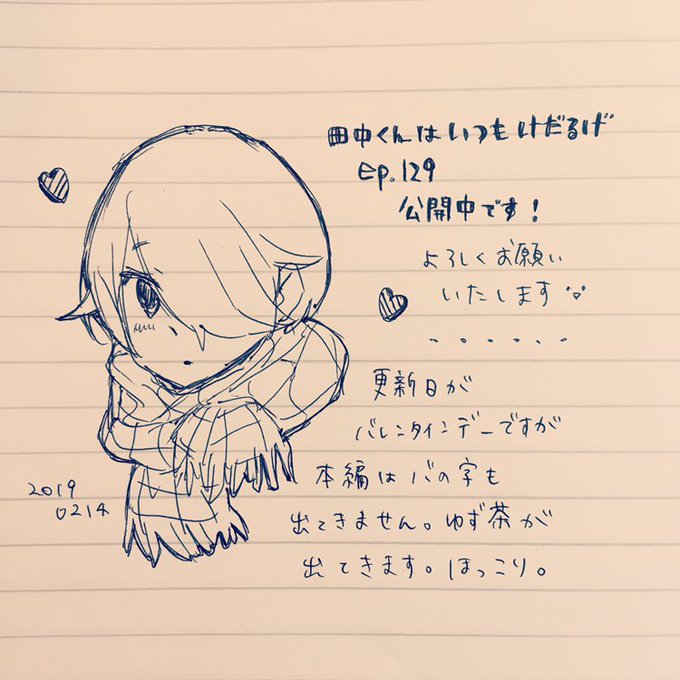 田中くんはいつもけだるげ
Ep.129
公開中です!
よろしくお願い
いたします
・・・・・・
更新日が
バレンタインデーですが
本編はバの字も
出てきません。ゆず茶が
出てきます。ほっこり。
2019
0214